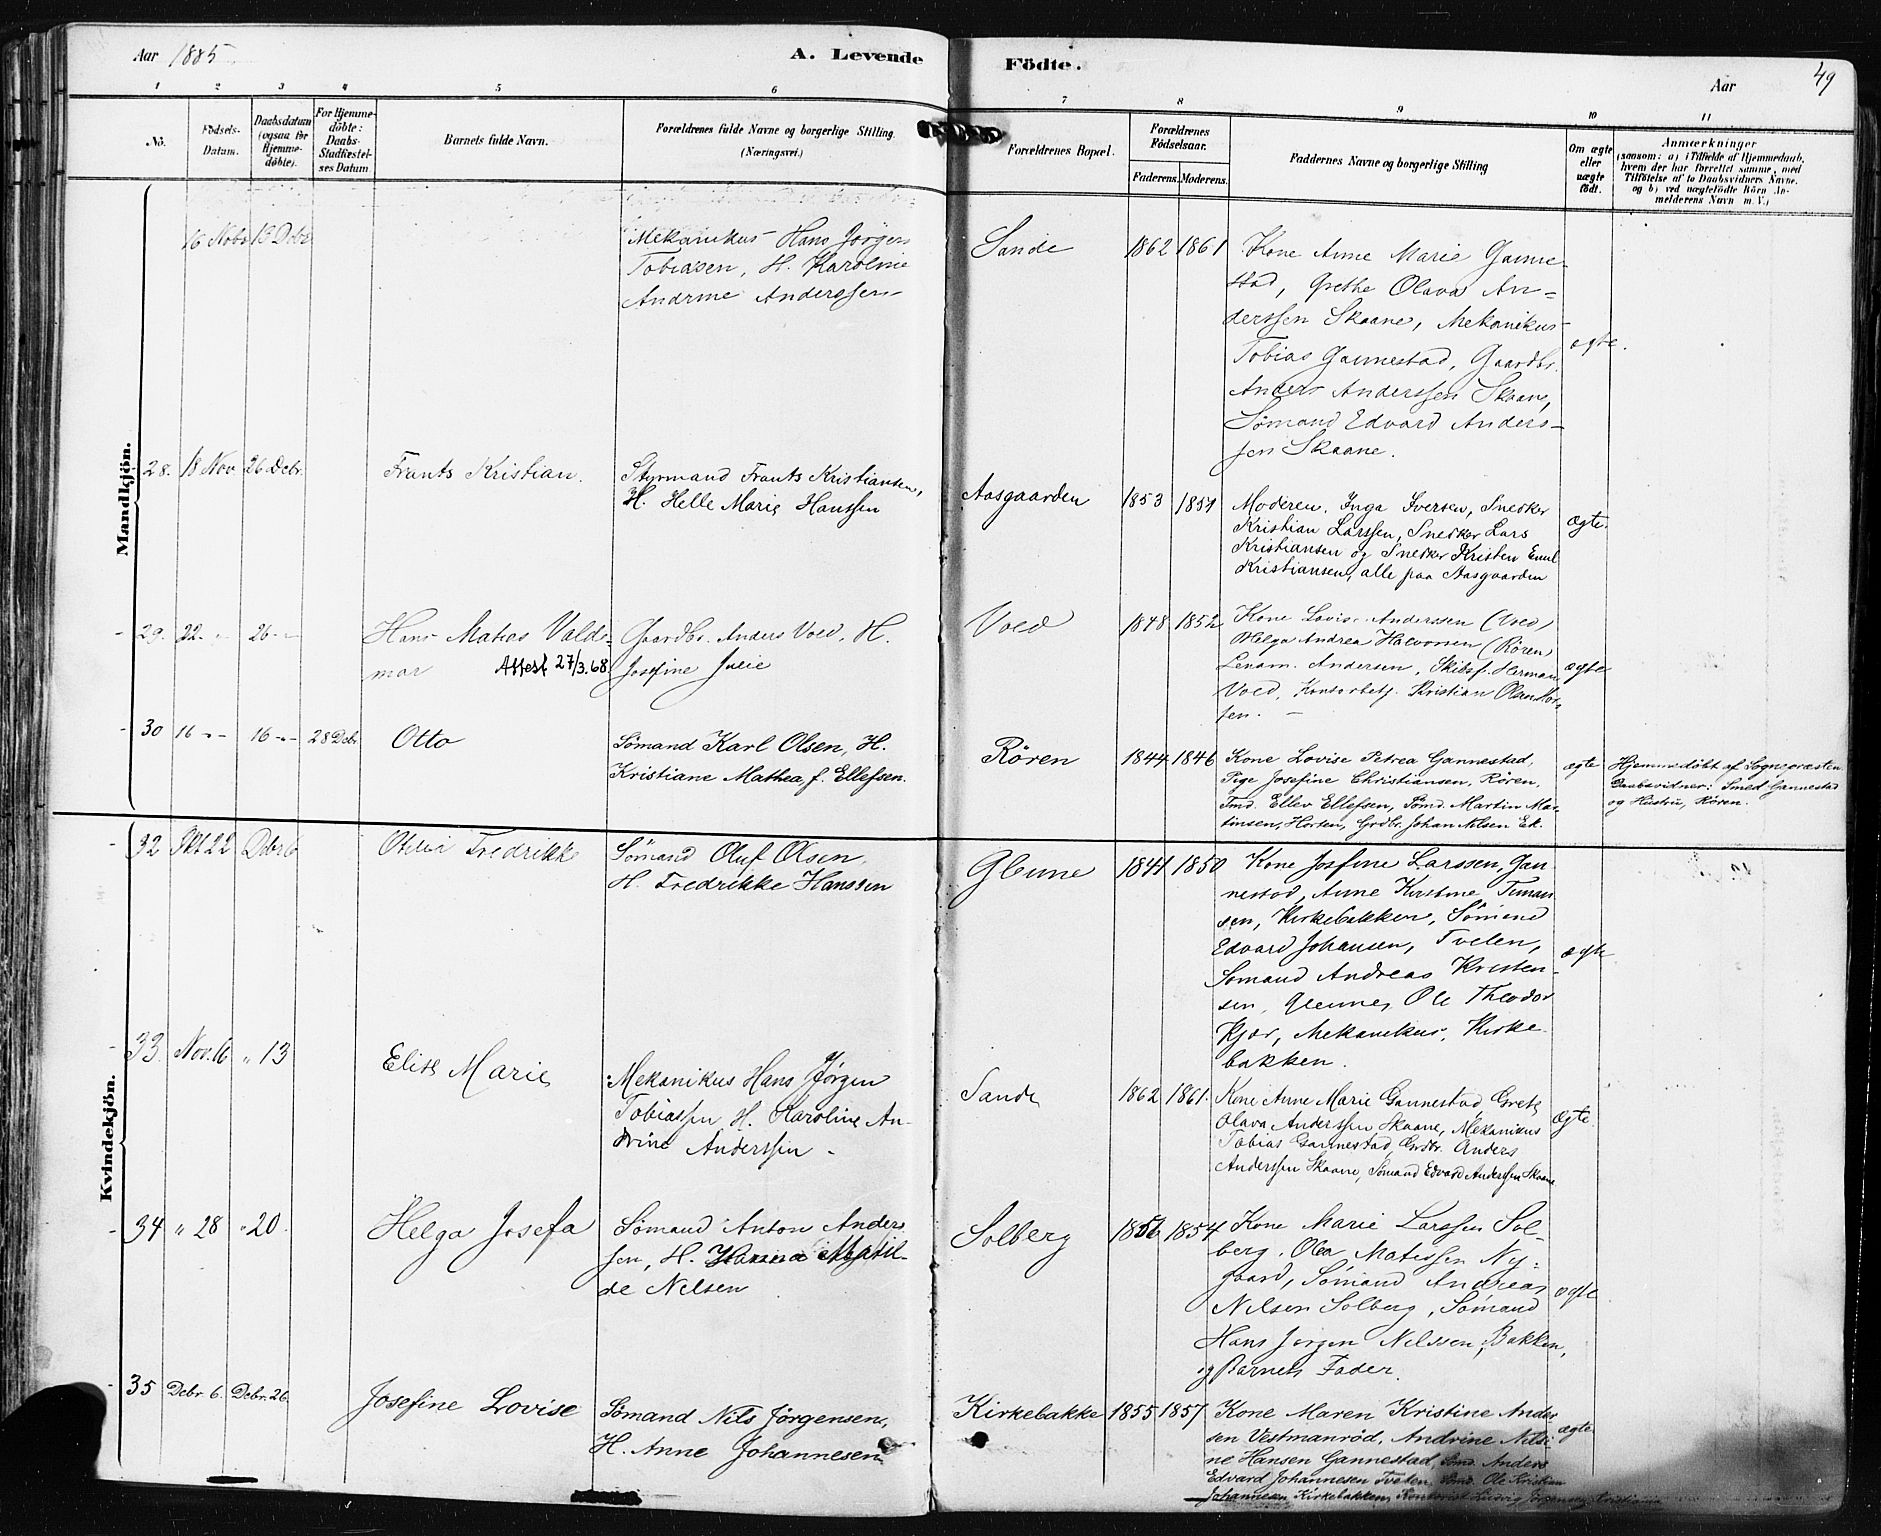 Aar 1885
A. Levende Födte.
Aar
49
1 2 3 4 5 6 7 8 9 10 11
No.
Födsels-Datum.
Daabsdatum (ogsaa for Hjemme-döbte).
For Hjemme-döbte: Daabs-Stadfæstel-ses Datum
Barnets fulde Navn.
Forældrenes fulde Navne og borgerlige Stilling.
(Næringsvei.)
Forældrenes Bopæl.
Forældrenes Födselsaar.
Faderens. Moderens.
Faddernes Navne og borgerlige Stilling
Om ægte eller uægte födt.
Anmærkninger
(saasom: a) i Tilfælde af Hjemmedaab,
hvem der har forrettet samme, med
Tilföielse af to Daabsvidners Navne.
og b) ved uægtefödte Börn An-
melderens Navn m. V.)
Mandkjön.
16 Novb 13 Debr
Mekanikus Hans Jörgen
Tobiasen, H. Karoline
Andrine Anderssen
Sande
1862 1861
Kone Anne Marie Ganne-
stad, Grethe Olava An-
derssen Skaane, Mekanikus
Tobias Gannestad, Gaardbr.
Anders Anderssen Skaane,
Sömand Edvard Anders-
sen Skaane.
ægte.
28. 18 Nov 26 Debr.
Frants Kristian.
Styrmand Frants Kristiansen,
H. Helle Marie Hanssen
Aasgaarden
1853 1851
Moderen, Inga Iversen, Snedker
Kristian Larssen, Snedker Lars
Kristiansen og Snedker Kristen Emil
Kristiansen, alle paa Aasgaarden
ægte.
29. 22 - " 26 - "
Hans Matias Valde-
mar Attest 27/3.68.
Gaardbr. Anders Vold, H.
Josefine Julie
Vold
1848 1852
Kone Lovise Anderssen (Vold)
Helga Andrea Halvorsen (Rören)
Andersen, Skibsf. Herman
Vold, Kontorbetj. Kristian Olsen
sen. -
ægte
30 16 - " - 16 - " - 28 Debr
Otto
Sömand Karl Olsen, H.
Kristiane Mathea, f. Ellefsen.
Rören
1844 1846
Kone Lovise Petrea Gannestad,
Pige Josefine Christiansen, Rören,
Tmd. Ellev Ellefsen, Sömd. Martin Mar-
tinsen, Horten, Grdbr. Johan Nilsen Ek.
ægte
Hjemmedöbt af Sognepræsten
Daabsvidner: Smed Gannestad
og Hustru, Rören.
Kvindekjön.
32 Okt 22 Debr 6
Otilia Fredrikke
Sömand Oluf Olsen
H. Fredrikke Hanssen
Glenne
1841 1850
Kone Josefine Larssen, Gan-
nestad, Anne Kristine Timan-
sen, Kirkebakken, Sömand
Edvard Johansen, Tveten,
Sömand Andreas Kristen-
sen, Glenne, Ole Theodor
Kjær, Mekanikus, Kirke-
bakken.
ægte
33. Nov. 16 " 13
Elise Marie
Mekanikus Hans Jörgen
Tobiassen H. Karoline An-
drine Anderssen -
Sande
1862 1861.
Kone Anne Marie Gannestad Grete
Olava Anderssen Skaane, Mekanikus
Tobias Gannestad, Grdbr. Anders
Anderssen Skaane, Sömand Edvard Anderssen Skaane
ægte.
34 " 28 " 20.
Helga Josefa
Sömand Anton Anders
sen, H. Hanna Matil-
de Nelsen
Solberg
1856 1854
Kone Marie Larssen Sol-
berg, Olea Matissen Ny-
gaard, Sömand Andreas
Nilsen Solberg, Sömand
Hans Jörgen Nelssen, Bakken,
og Barnets Fader.
ægte
35 Debr 6. Debr. 26.
Josefine Lovise
Sömand Nils Jörgensen,
H. Anne Johannesen
Kirkebakke
1855 1857
Kone Maren Kristine Ander-
sen Vestmanröd, Andrine Nilsi-
ne Hansen Gannestad, Sömd. Anders
Edvard Johannesen Tveten, Sömd. Ole Kristian
Johannesen Kirkebakken, Kontorist Ludvig Jörgensen, Kristiania
ægte